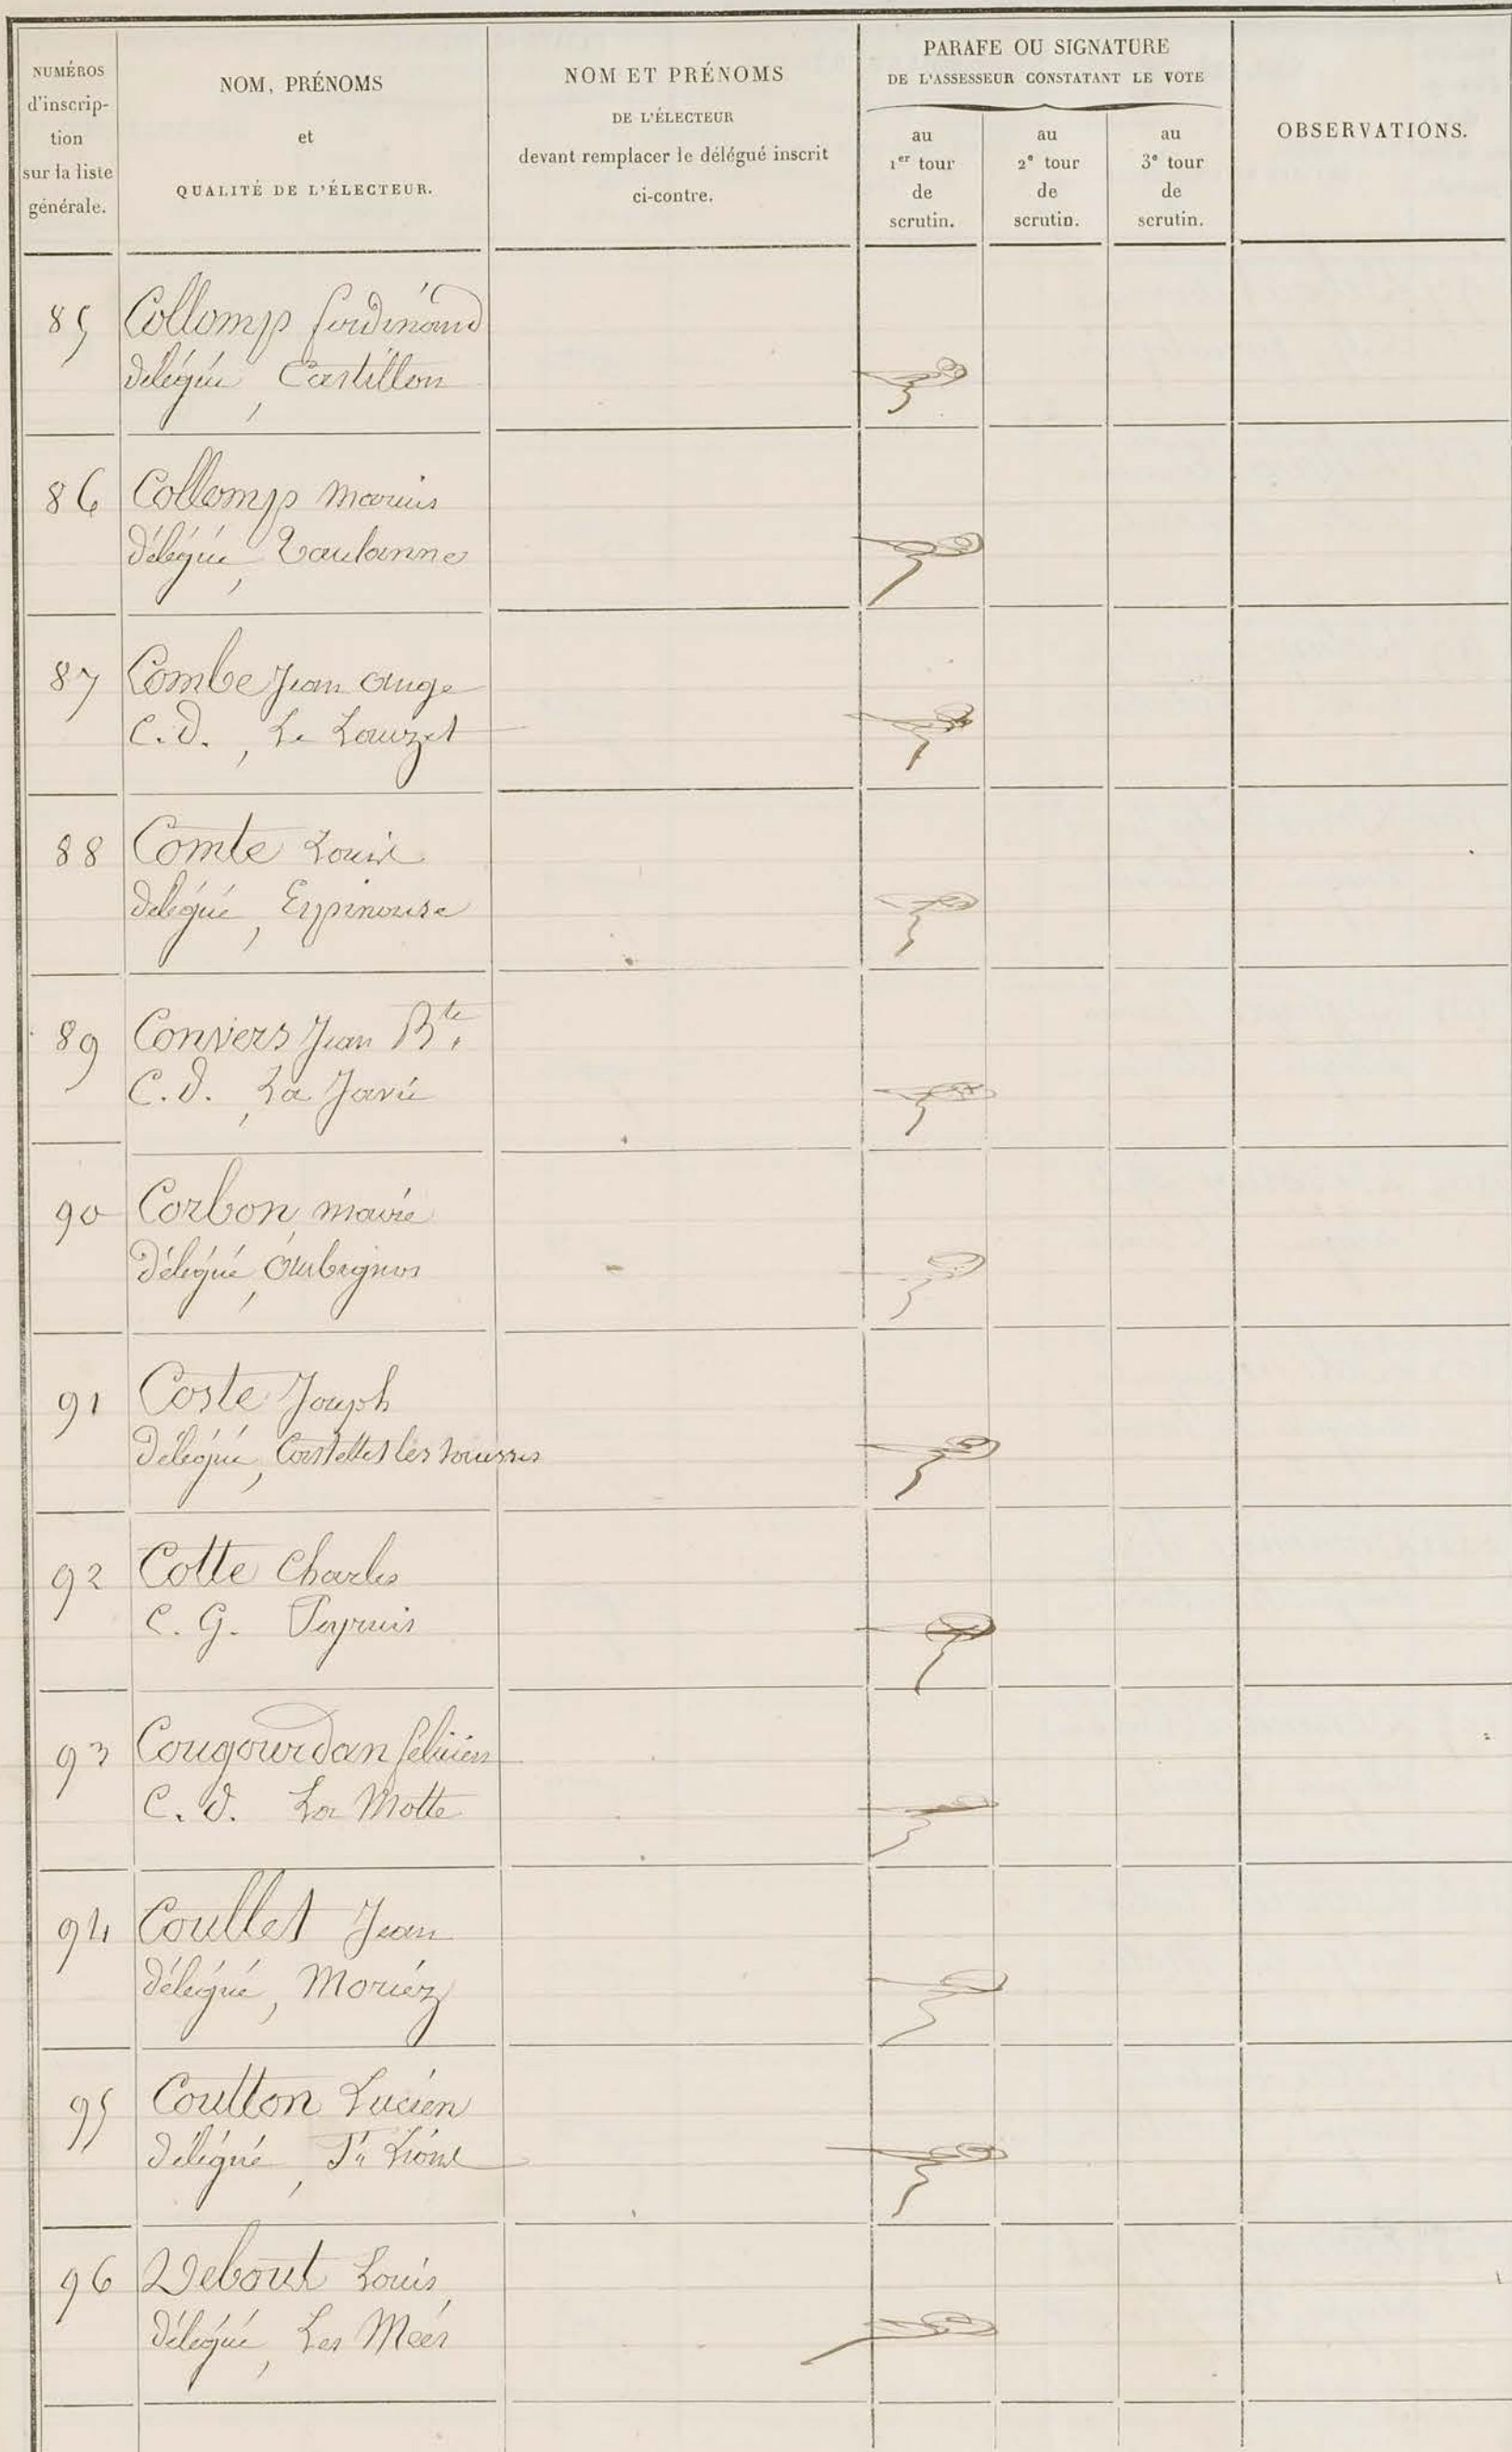 NUMÉROS
d'inscrip-
tion
sur la liste
générale.
NOM, PRÉNOMS
et
QUALITÉ DE L'ÉLECTEUR.
NOM ET PRÉNOMS
DE L'ÉLECTEUR
devant remplacer le délégué inscrit
ci-contre.
PARAFE OU SIGNATURE
DE L'ASSESSEUR CONSTATANT LE VOTE
au
1er tour
de
scrutin.
au
2e tour
de
scrutin.
au
3e tour
de
scrutin.
OBSERVATIONS.
85 Collomp ferdinand
délégué, Castillon
86 Collomp marius
délégué, Taulanne
87 Combe Jean ange
C.d., Le Lauzet
88 Comte Louis
délégué, Espinouse
89 Convers Jean Bte
C.d., La Javie
90 Corbon marie
délégué, Aubignos
91 Coste Joseph
délégué, Castellet les sausses
92 Cotte Charles
C. G. Peyruis
93 Cougourdan felicien
C. d. La Motte
94 Coullet Jean
délégué, Moriéz
95 Coutton Lucien
délégué,
96 Debout Louis,
délégué, Les Meés